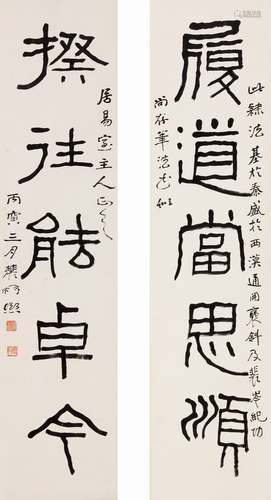 履道當思順
此隸法基於秦盛於兩漢通用襃斜及裴岑紀功
尚存筆法
揆往能卓今
居易室主人正之
丙寅三月